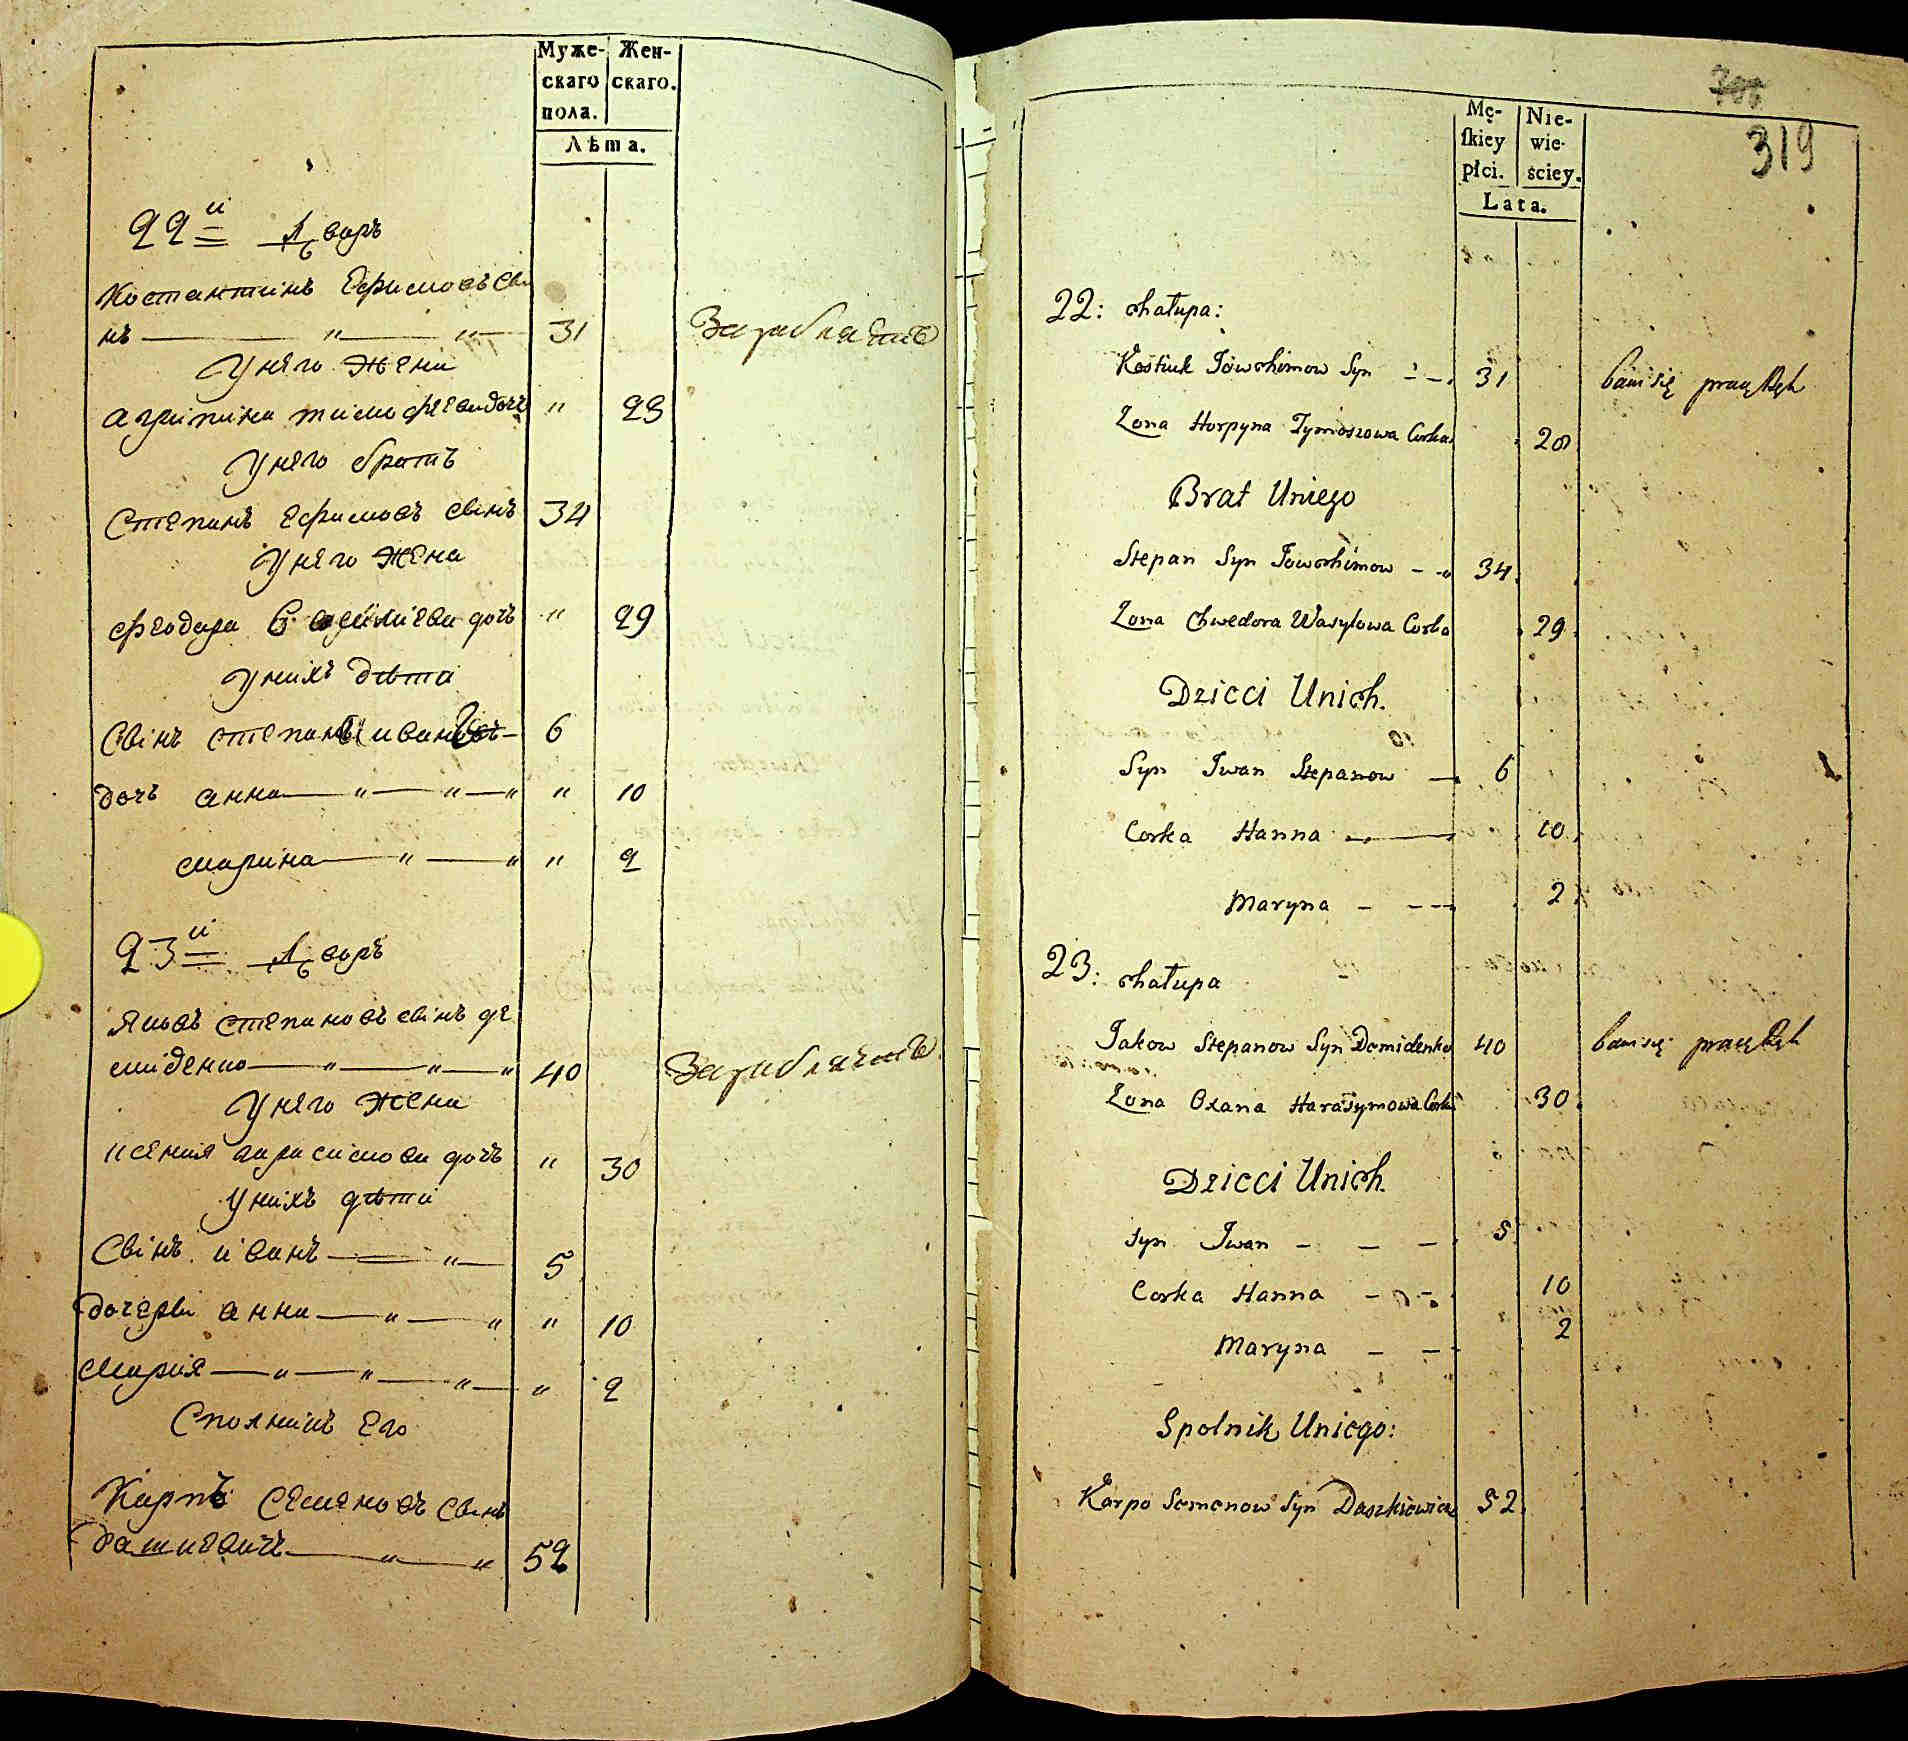 Муже-
скаго
пола.
Жен-
скаго.
Лѣта.
22й Дворъ
Костантинъ Ефимовъ Сві
нъ 31 Заработъ
У него жена
агрипина тимофеева дочъ " 28
У него братъ
Степанъ Ефимовъ свінъ 34
У него жена
феодора Василіева дочъ " 29
У нихъ дѣти
Свінъ степан иван 6
дочъ анна " " " " 10
марина " " " 2
23й Дворъ
Яковъ степановъ свінъ де
миденко " " " 40
У него жена
ксения гарасимова дочъ " 30
У нихъ дѣти
Свінъ иванъ " 5
дочери анна " " " 10
Мария " " " " 2
Сполникъ Его
Карпъ Семеновъ Свінъ
дашкевичъ " " 52
319
Mę-
ſkiey
płci.
Nie-
wie-
ściey.
Lata.
22: chałupa:
Kostiuk Jowchimow Syn 31 bawi się pracą Rąk
Zona Horpyna Tymoszowa Corka 28
Brat Uniego
Stepan Syn Jowchimow 34
Zona Chwedora Wasylowa Corka 29
Dzicci Unich.
Syn Iwan Stepanow 6
Corka Hanna 10
Maryna 2
23: chałupa
Jakow Stepanow Syn Demidenko 40 bawi się pracą Rąk
Zona Oxana Harasymowa Corka 30
Dzicci Unich
Syn Iwan 5
Corka Hanna 10
Maryna 2
Spolnik Uniego:
Karpo Semenow Syn Daszkiewicz 52